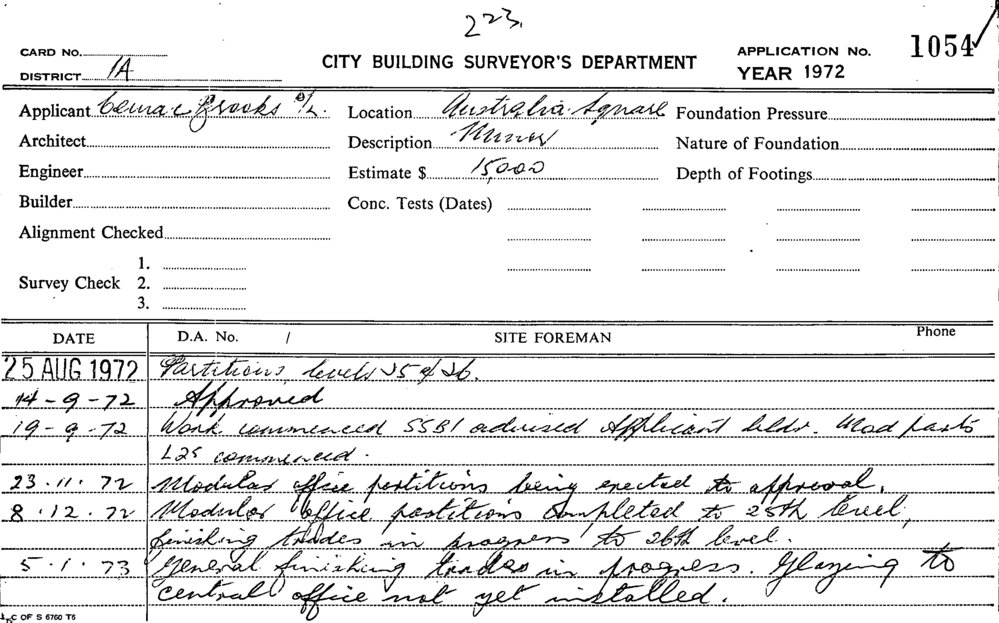 223.
CARD No.
DISTRICT 1A
CITY BUILDING SURVEYOR'S DEPARTMENT
APPLICATION No. 1054
YEAR 1972
Applicant Brooks P/L. Location Australia Square Foundation Pressure
Architect Description Minor Nature of Foundation
Engineer Estimate $ 15,000 Depth of Footings
Builder Conc. Tests (Dates)
Alignment Checked
Survey Check 1.
2.
3.
DATE D.A. No. / SITE FOREMAN Phone
25 AUG 1972 Partitions, levels 25 & 26.
14-9-72 Approved
19-9-72 Work commenced SSB1 advised Applicant bldr. Mod parts
L25 commenced.
23.11.72 Modular office partitions being erected to approval.
8.12.72 Modular office partitions completed to 25th level,
finishing trades in progress to 26th level.
5.1.73 General finishing trades in progress. Glazing to
central office not yet installed.
C OF S 6760 T6